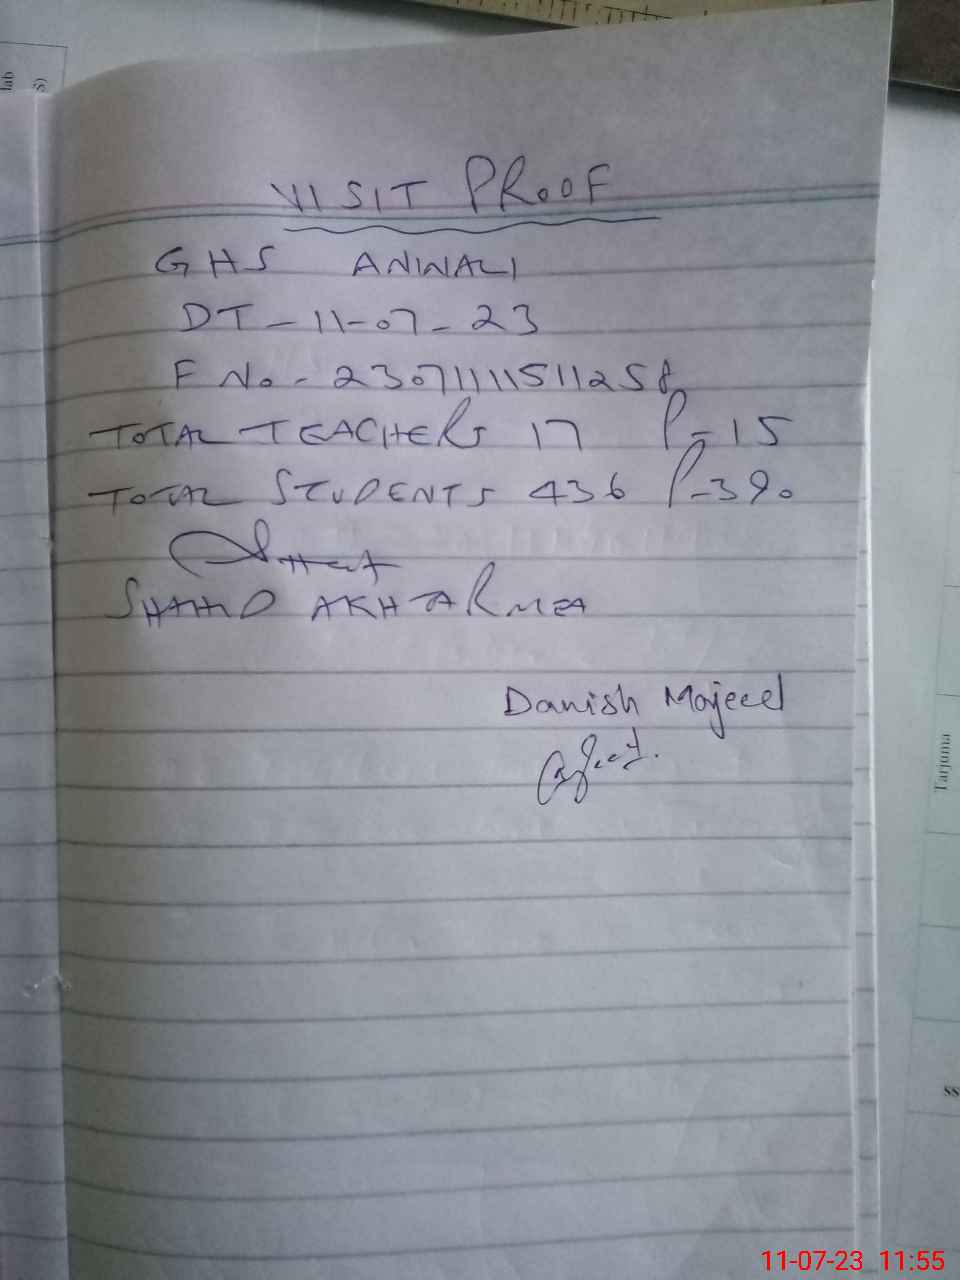 VISIT PROOF
GHS ANWALI
DT-11-07-23
F No.-23071111511258
TOTAL TEACHERS 17 P-15
TOTAL STUDENTS 436 P-390
SHAHID AKHTAR MEA
Danish Majeed
lab
S)
Tarjuma
ss
11-07-23 11:55